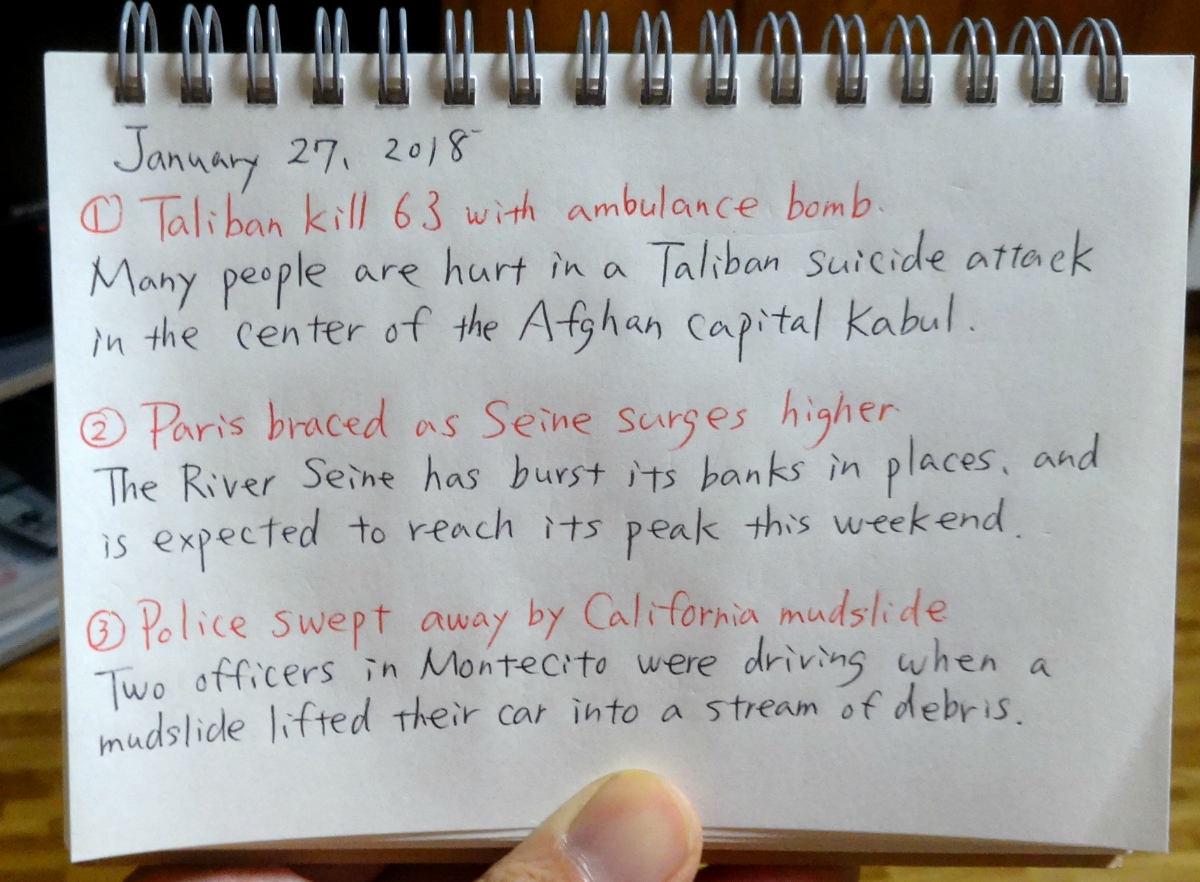 January 27, 2018
① Taliban kill 63 with ambulance bomb.
Many people are hurt in a Taliban suicide attack
in the center of the Afghan capital Kabul.
② Paris braced as Seine surges higher
The River Seine has burst its banks in places, and
is expected to reach its peak this weekend.
③ Police swept away by California mudslide
Two officers in Montecito were driving when a
mudslide lifted their car into a stream of debris.